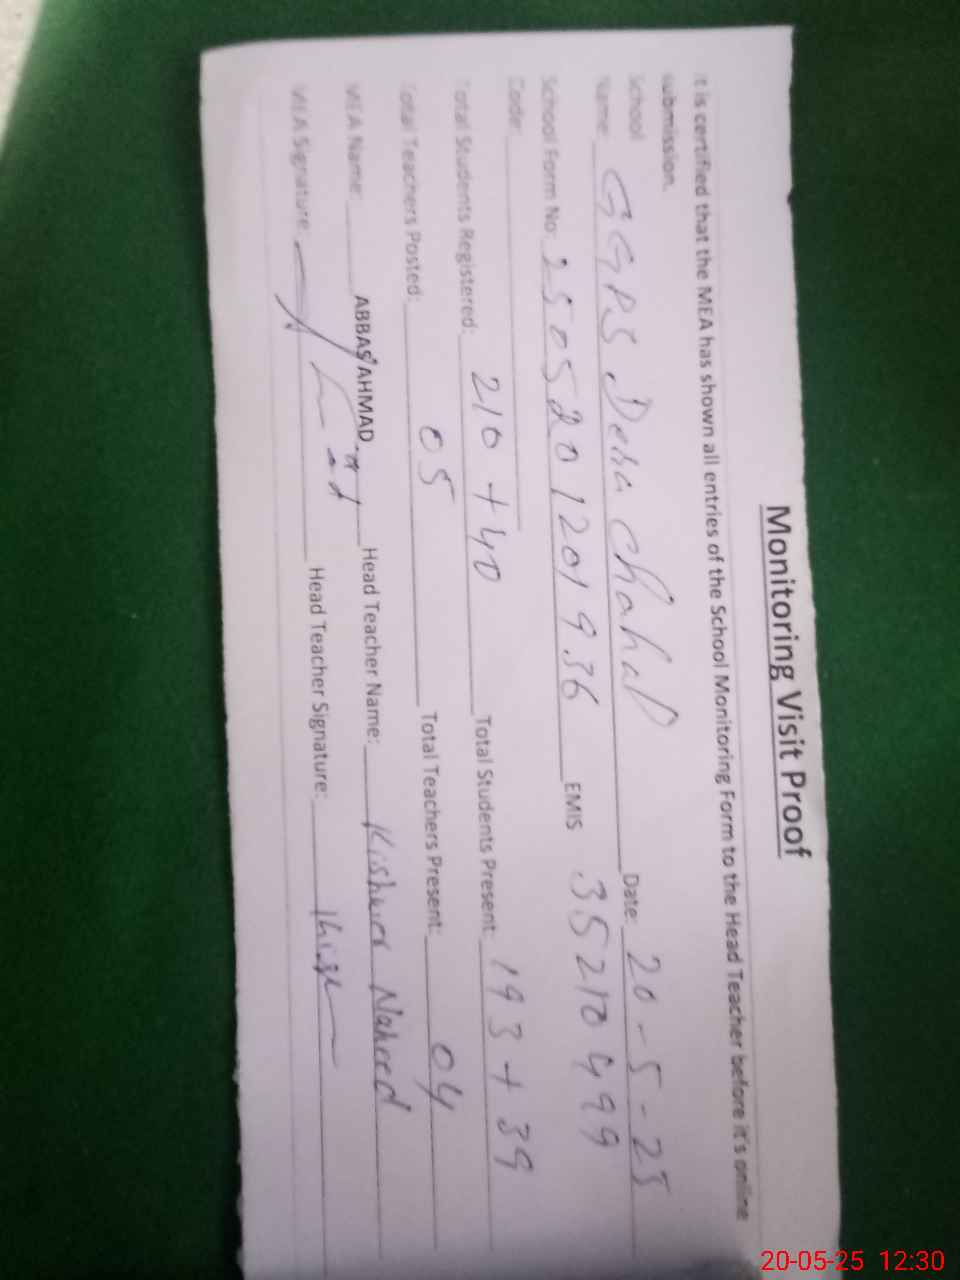 Monitoring Visit Proof
It is certified that the MEA has shown all entries of the School Monitoring Form to the Head Teacher before it's online
submission.
School
Name GGPS Dera Chahal Date: 20-5-25
School Form No: 2505201201936 EMIS 35210499
Code:
Total Students Registered: 210 + 40 Total Students Present: 193 + 39
Total Teachers Posted: 05 Total Teachers Present: 04
MEA Name: ABBAS AHMAD Head Teacher Name: Kishwer Naheed
MEA Signature: Head Teacher Signature:
20-05-25 12:30